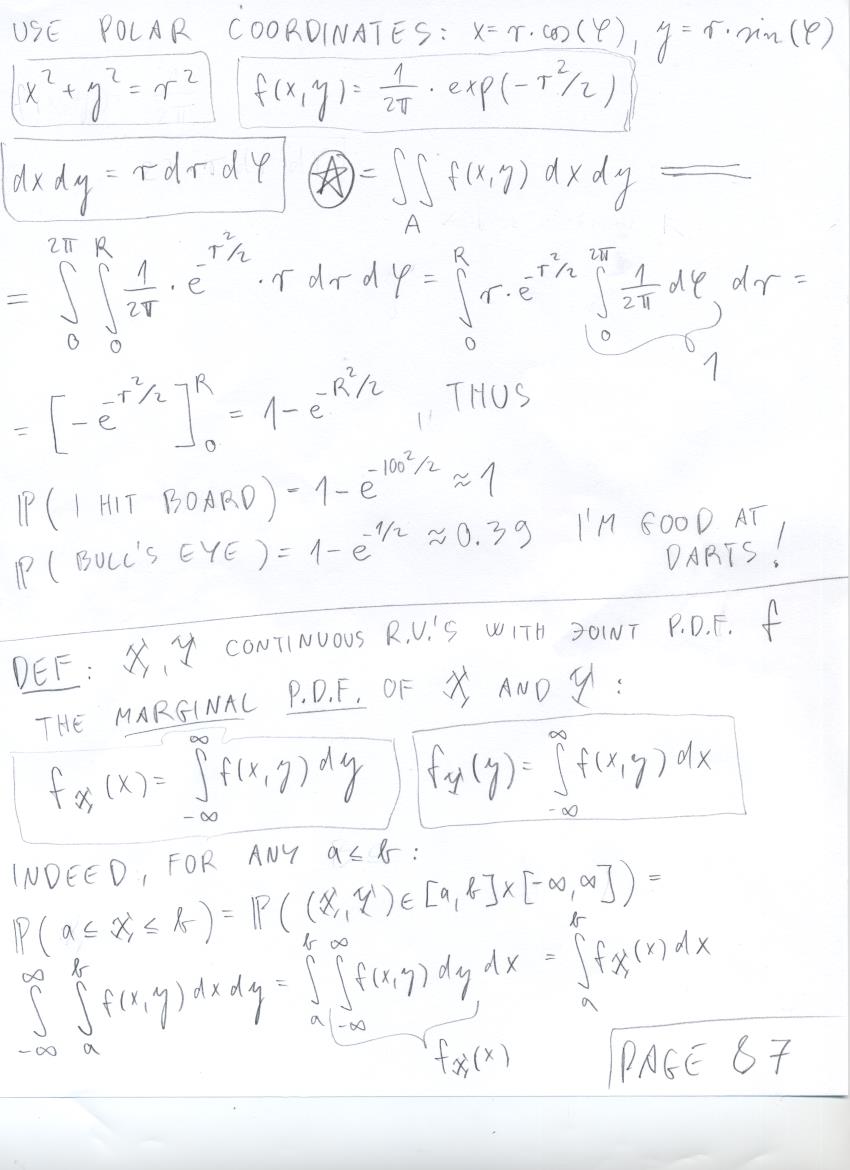 USE POLAR COORDINATES: x = r·cos(φ), y = r·sin(φ)
x² + y² = r²   f(x,y) = 1/2π · exp(-r²/2)
dx dy = r dr dφ   ☆ = ∬_A f(x,y) dx dy =
= ∫_0^{2π} ∫_0^R 1/2π · e^{-r²/2} · r dr dφ = ∫_0^R r·e^{-r²/2} ∫_0^{2π} 1/2π dφ dr =
1
= [-e^{-r²/2}]_0^R = 1 - e^{-R²/2}, THUS
ℙ( I HIT BOARD) = 1 - e^{-100²/2} ≈ 1
ℙ( BULL'S EYE ) = 1 - e^{-1/2} ≈ 0.39   I'M GOOD AT DARTS!
DEF: X, Y CONTINUOUS R.V.'S WITH JOINT P.D.F. f
THE MARGINAL P.D.F. OF X AND Y :
f_X(x) = ∫_{-∞}^{∞} f(x,y) dy   f_Y(y) = ∫_{-∞}^{∞} f(x,y) dx
INDEED, FOR ANY a ≤ b :
ℙ( a ≤ X ≤ b ) = ℙ( (X,Y) ∈ [a,b] × [-∞,∞] ) =
∫_{-∞}^{∞} ∫_a^b f(x,y) dx dy = ∫_a^b ∫_{-∞}^{∞} f(x,y) dy dx = ∫_a^b f_X(x) dx
f_X(x)
PAGE 87